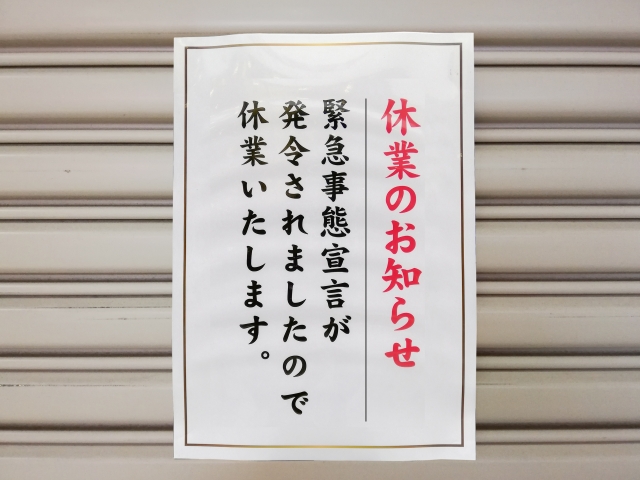 休業のお知らせ
緊急事態宣言が
発令されましたので
休業いたします。